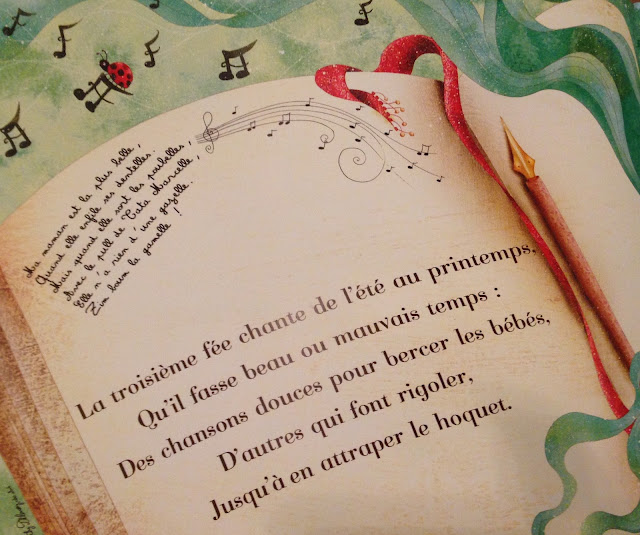 Ma maman est la plus belle,
Quand elle enfile ses dentelles.
Mais quand elle sort les poubelles,
Avec le pull de Tata Marcelle,
Elle n'a rien d'une gazelle.
Zim bum la gamelle !
La troisième fée chante de l'été au printemps,
Qu'il fasse beau ou mauvais temps :
Des chansons douces pour bercer les bébés,
D'autres qui font rigoler,
Jusqu'à en attraper le hoquet.